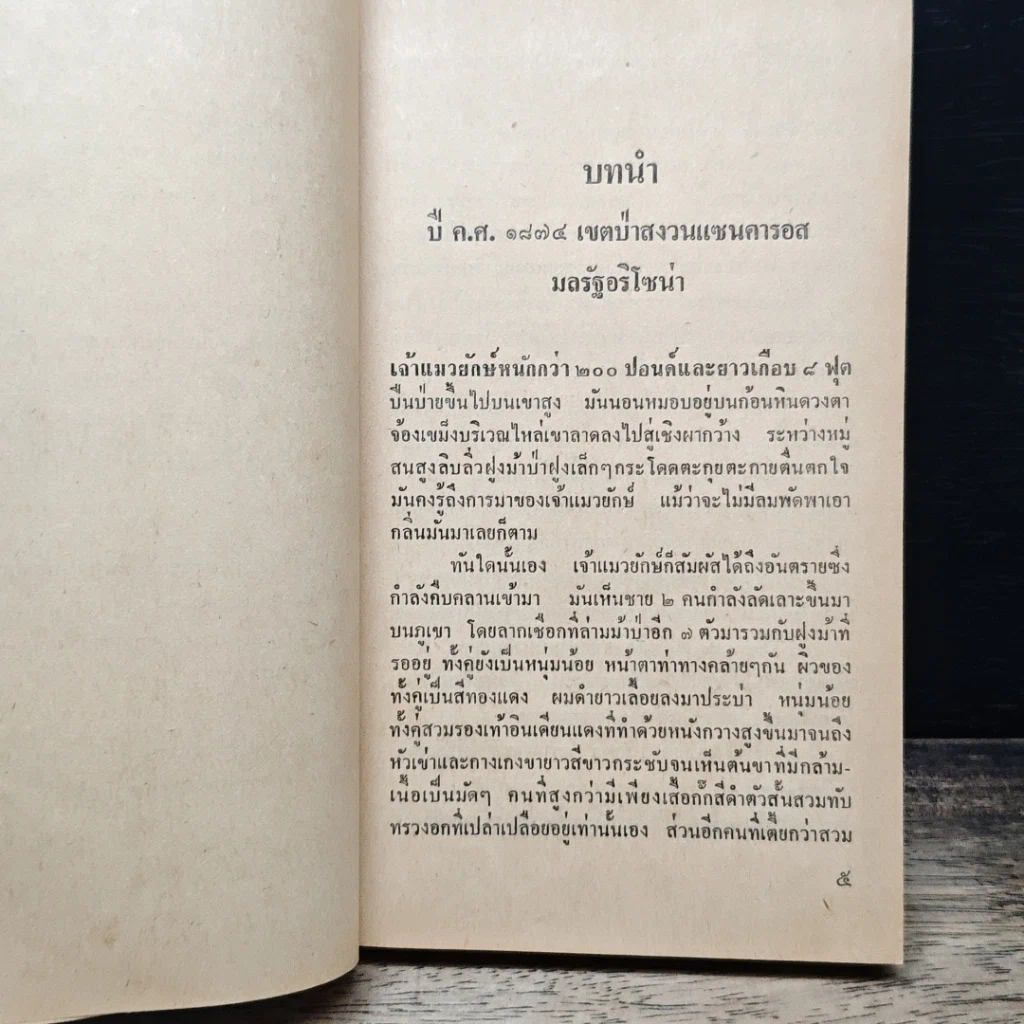 บทนำ
ปี ค.ศ. ๑๘๗๔ เขตป่าสงวนแซนคารอส
มลรัฐอริโซน่า
เจ้าแมวยักษ์หนักกว่า ๒๐๐ ปอนด์และยาวเกือบ ๘ ฟุต
ปืนป่ายขึ้นไปบนเขาสูง มันนอนหมอบอยู่บนก้อนหินดวงตา
จ้องเขม็งบริเวณไหล่เขาลาดลงไปสู่เชิงผากว้าง ระหว่างหมู่
สนสูงลิบลิ่วฝูงม้าป่าฝูงเล็กๆกระโดดตะกุยตะกายตื่นตกใจ
มันคงรู้ถึงการมาของเจ้าแมวยักษ์ แม้ว่าจะไม่มีลมพัดพาเอา
กลิ่นมันมาเลยก็ตาม
ทันใดนั้นเอง เจ้าแมวยักษ์ก็สัมผัสได้ถึงอันตรายซึ่ง
กำลังคืบคลานเข้ามา มันเห็นชาย ๒ คนกำลังลัดเลาะขึ้นมา
บนภูเขา โดยลากเชือกที่ล่ามม้าป่าอีก ๗ ตัวมารวมกับฝูงม้าที่
รออยู่ ทั้งคู่ยังเป็นหนุ่มน้อย หน้าตาท่าทางคล้ายๆกัน ผิวของ
ทั้งคู่เป็นสีทองแดง ผมดำยาวเลื้อยลงมาประบ่า หนุ่มน้อย
ทั้งคู่สวมรองเท้าอินเดียนแดงที่ทำด้วยหนังกวางสูงขึ้นมาจนถึง
หัวเข่าและกางเกงขายาวสีขาวกระชับจนเห็นต้นขาที่มีกล้าม-
เนื้อเป็นมัดๆ คนที่สูงกว่ามีเพียงเสื้อกั๊กสีดำตัวสั้นสวมทับ
ทรวงอกที่เปล่าเปลือยอยู่เท่านั้นเอง ส่วนอีกคนที่เตี้ยกว่าสวม
๕